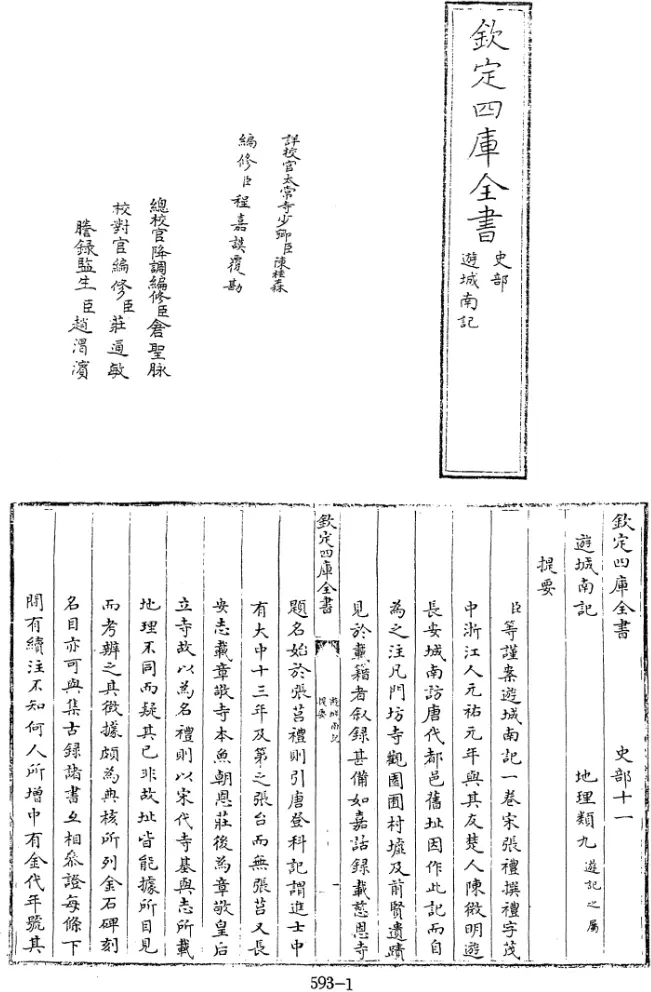 欽定四庫全書
史部
遊城南記
詳校官太常寺少卿臣陳桂森
編修臣程嘉謨覆勘
總校官降調編修臣倉聖脉
校對官編修臣莊通敏
謄錄監生臣趙渭濱
欽定四庫全書 史部十一
遊城南記 地理類九 遊記之屬
提要
臣等謹案遊城南記一卷宋張禮撰禮字茂
中浙江人元祐元年與其友楚人陳微明遊
長安城南訪唐代都邑舊址因作此記而自
為之注凡門坊寺觀園囿村墟及前賢遺蹟
見於載籍者敘録甚備如嘉話録載慈恩寺
欽定四庫全書 遊城南記 提要 一
題名始於張莒禮則引唐登科記謂進士中
有大中十三年及第之張台而無張莒又長
安志載章敬寺本魚朝恩莊後為章敬皇后
立寺故以為名禮則以宋代寺基與志所載
地理不同而疑其已非故址皆能據所目見
而考辨之其徵據頗為典核所列金石碑刻
名目亦可與集古録諸書互相叅證每條下
間有續注不知何人所增中有金代年號其
593-1